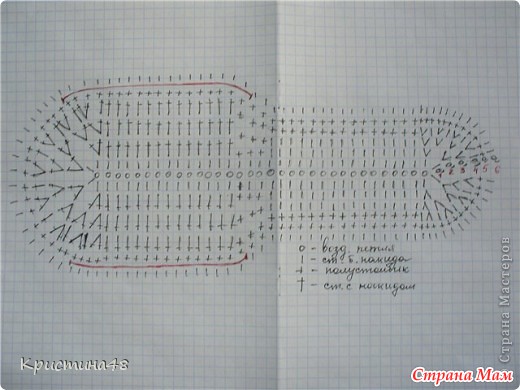 1 2 3 4 5 6
о - возд. петля
| - ст. б. накида
+ - полустолбик
† - ст. с накидом
Страна Мастеров
Кристина48
Страна Мам